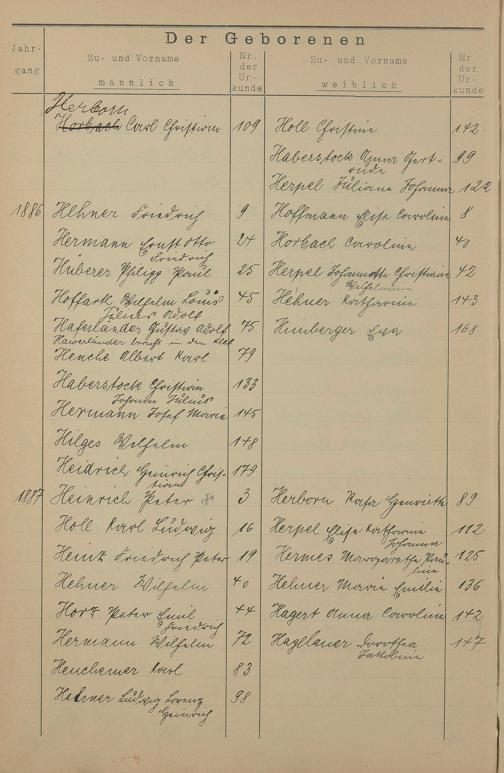 Der Geborenen
Jahr-
gang
Zu- und Vorname
männlich
Nr.
der
Ur-
kunde
Zu- und Vorname
weiblich
Nr.
der
Ur-
kunde
Herborn
Horbach Carl Christian 109 Holl Christine 142
Haberstock Anna Gert- 99
rude
Herpel Juliane Johanna 122
1886 Hehner Friedrich 9 Hoffmann Elise Caroline 8
Hermann Ernst Otto 24 Horbach Caroline 40
Friedrich
Huberer Philipp Paul 25 Herpel Christiane 42
Wilhelmine
Hoffart Wilhelm Louis 45 Hehner Katharine 143
Julius Adolf
Haferländer Gustav Adolf 75 Himberger Eva 168
in den
Henche Albert Karl 79
Haberstock Christian 133
Johann Julius
Hermann Josef Maria 145
Hilges Wilhelm 148
Heidrich Heinrich Chris- 179
tian
1887 Heinrich Peter 3 Herborn Henriette 89
Holl Karl Ludwig 16 Herpel Elise Katharine 112
Johanna
Heinz Friedrich Peter 19 Hermes Margarethe Pau- 125
line
Hehner Wilhelm 40 Hehner Marie Emilie 136
Horz Peter Emil 44 Hagert Anna Caroline 142
Friedrich
Hermann Wilhelm 72 Dorothea 147
Henchemer Karl 83
Ludwig Lorenz 98
Heinrich